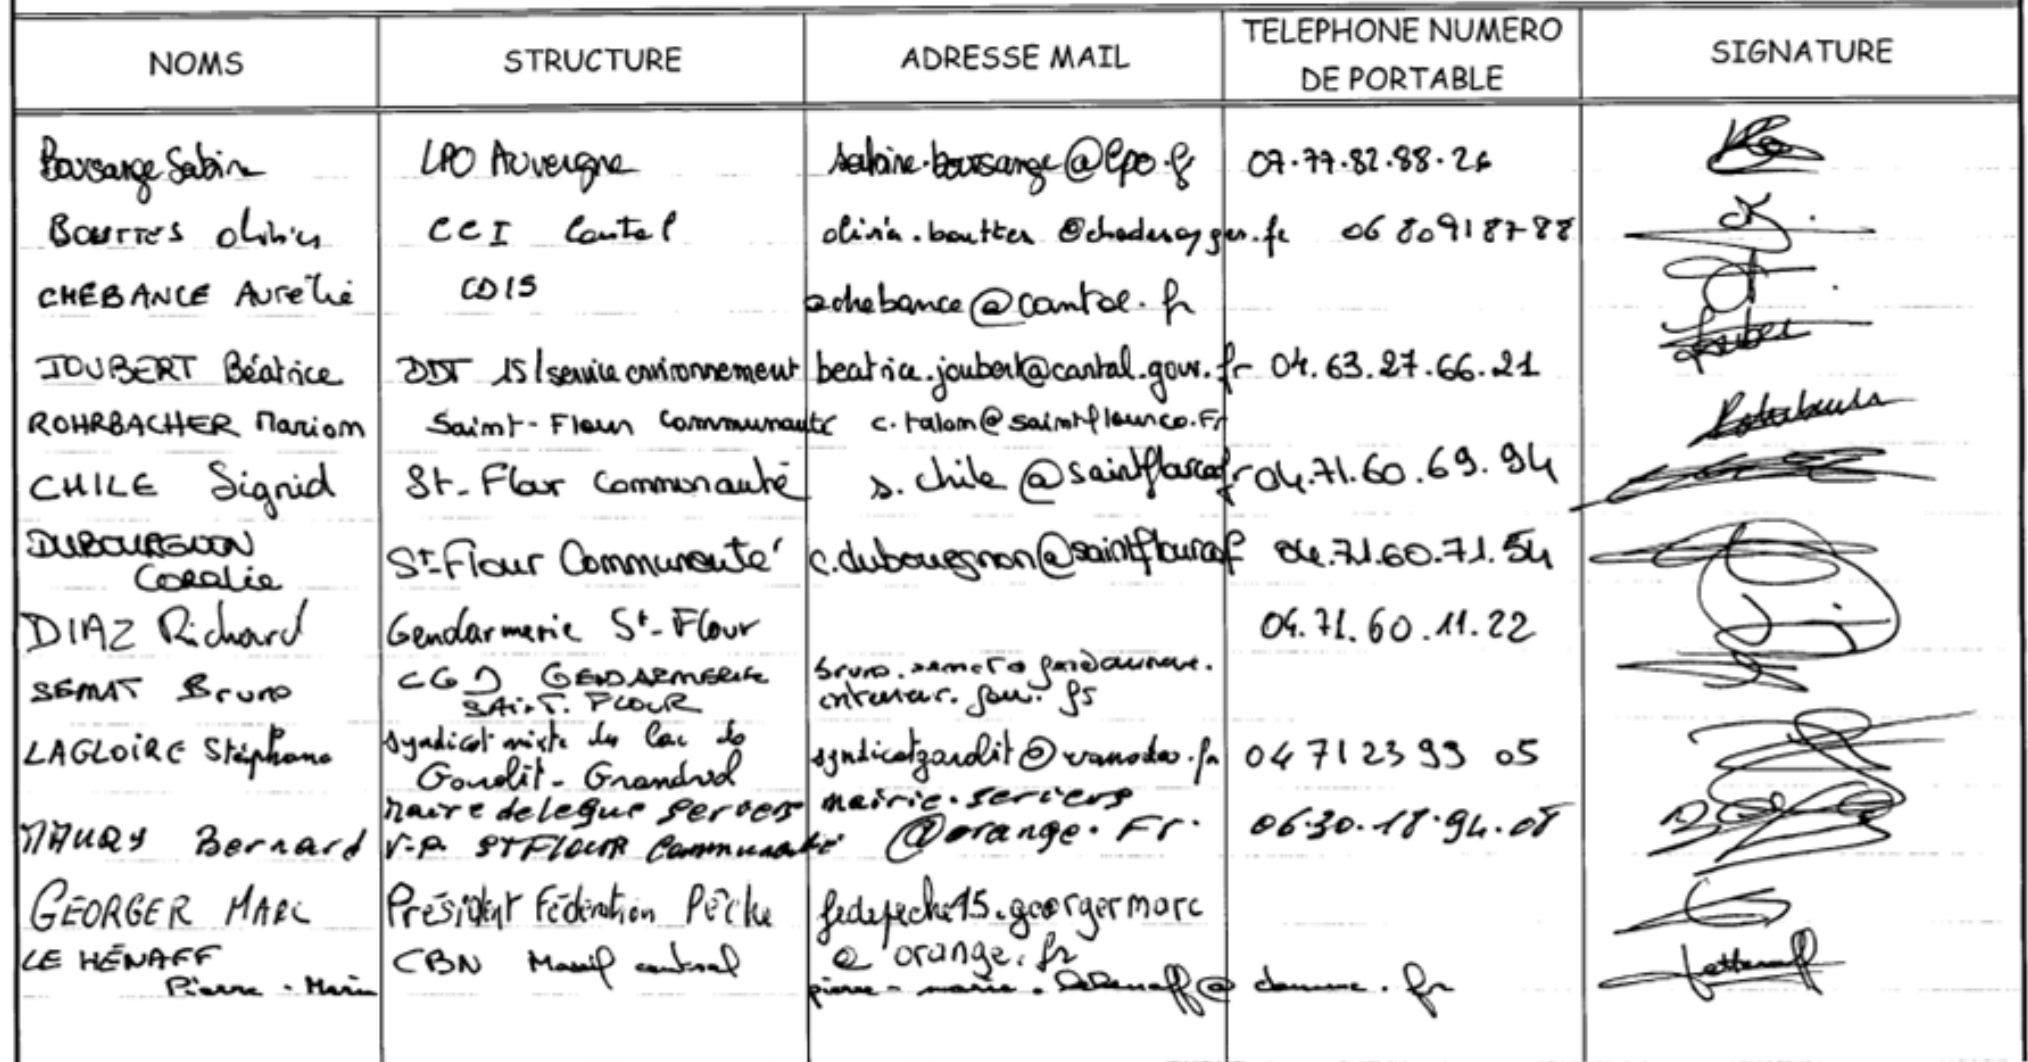 NOMS STRUCTURE ADRESSE MAIL TELEPHONE NUMERO DE PORTABLE SIGNATURE
Boursange Sabine LPO Auvergne sabine.boursange@lpo.fr 07.77.82.88.26
BOUTTES Olivier CCI Cantal 06 80918788
CHEBANCE Aurélie CD15 achebance@cantal.fr
JOUBERT Béatrice DDT 15/service environnement beatrice.joubert@cantal.gouv.fr 04.63.27.66.21
ROHRBACHER Marion Saint-Flour Communauté c.talon@saintflourco.Fr
CHILE Sigrid St-Flour Communauté s.chile@saintflourco.fr 04.71.60.69.94
DUBOURGNON
Coralie St-Flour Communauté 04.71.60.71.54
DIAZ Richard Gendarmerie St-Flour 04.71.60.11.22
SEMAT Bruno CGD GENDARMERIE
SAINT.FLOUR
LAGLOIRE Stéphane Syndicat mixte du lac de
Garabit-Grandval 04 71 23 93 05
maire delegue Seriers mairie.seriers
MAURY Bernard V-P ST FLOUR Communauté @orange.Fr. 06.30.18.94.08
GEORGER MARC Président Fédération Pêche fedepeche15.georgermarc
@orange.fr
LE HÉNAFF CBN Massif central
Pierre-Marie